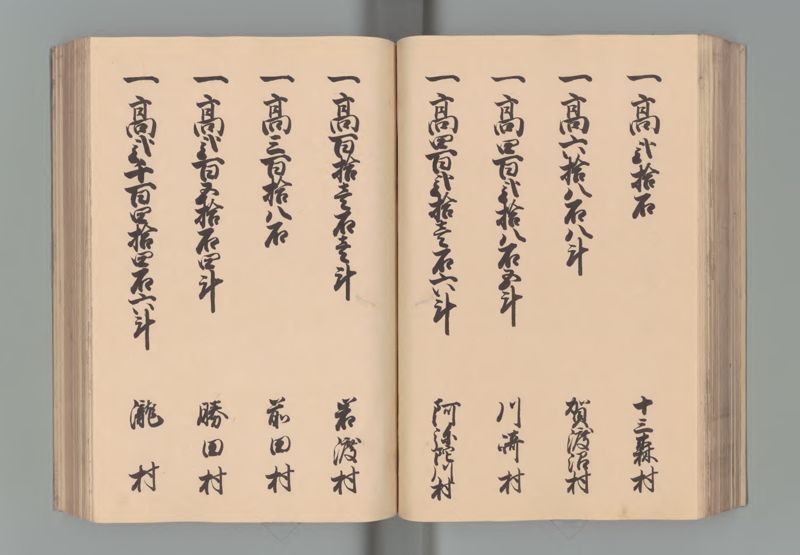 一高弐拾石　十三森村
一高六拾八石八斗　賀渡沼村
一高四百弐拾八石五斗　川崎村
一高四百弐拾壱石六斗　阿弥陀川村
一高百拾壱石壱斗　岩渡村
一高三百拾八石　前田村
一高弐百五拾石四斗　勝田村
一高弐千百四拾四石六斗　瀧村